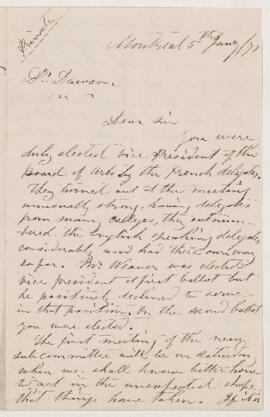 Private
Montreal 5th Jany /71
Dr Dawson
Dear Sir
You were
duly elected vice President of the
Board of Arts by the French delegates.
They turned out at the meeting
unusually strong, having delegates
from many colleges, they outnum-
bered the English speaking delegates
considerably and had there own way
so far. Mr Weaver was elected
vice president at first ballot but
he positively declined to serve
in that position. On the second ballot
you were elected.
The first meeting of the new
subcommittee will be on Saturday
when we shall know better how
to act in the unexpected shape
that things have taken.